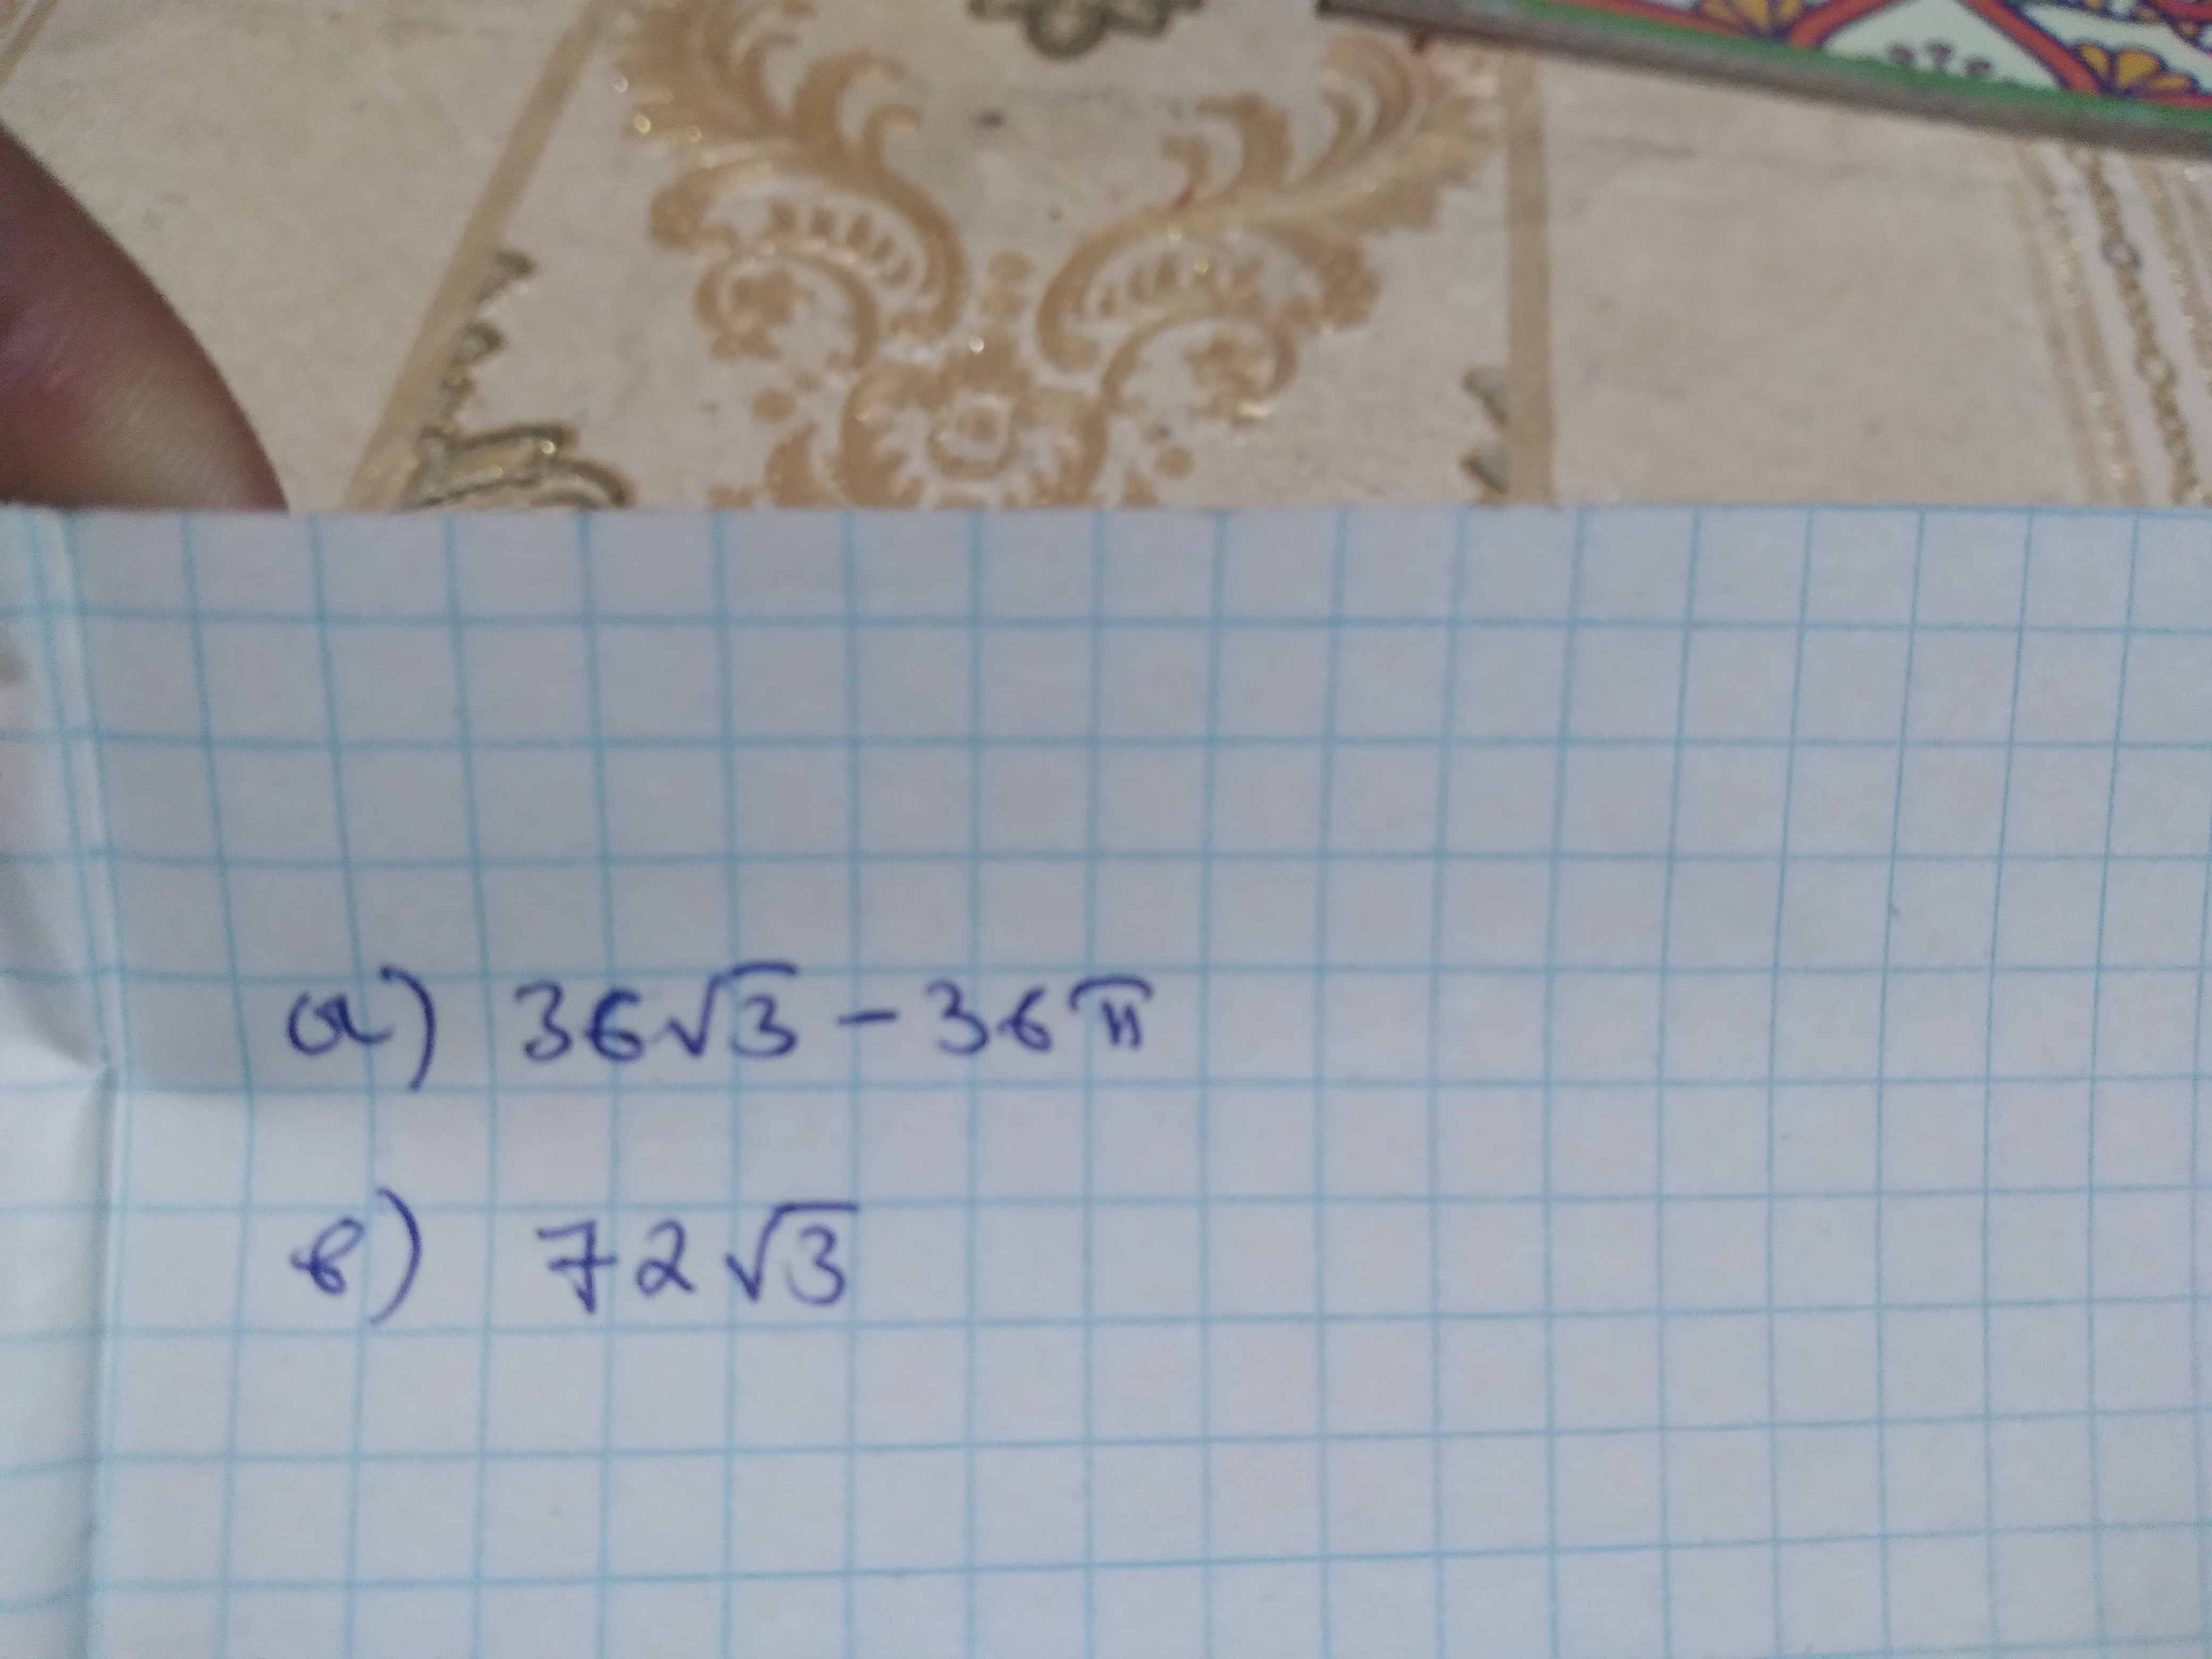 а) 36√3 - 36π
в) 72√3